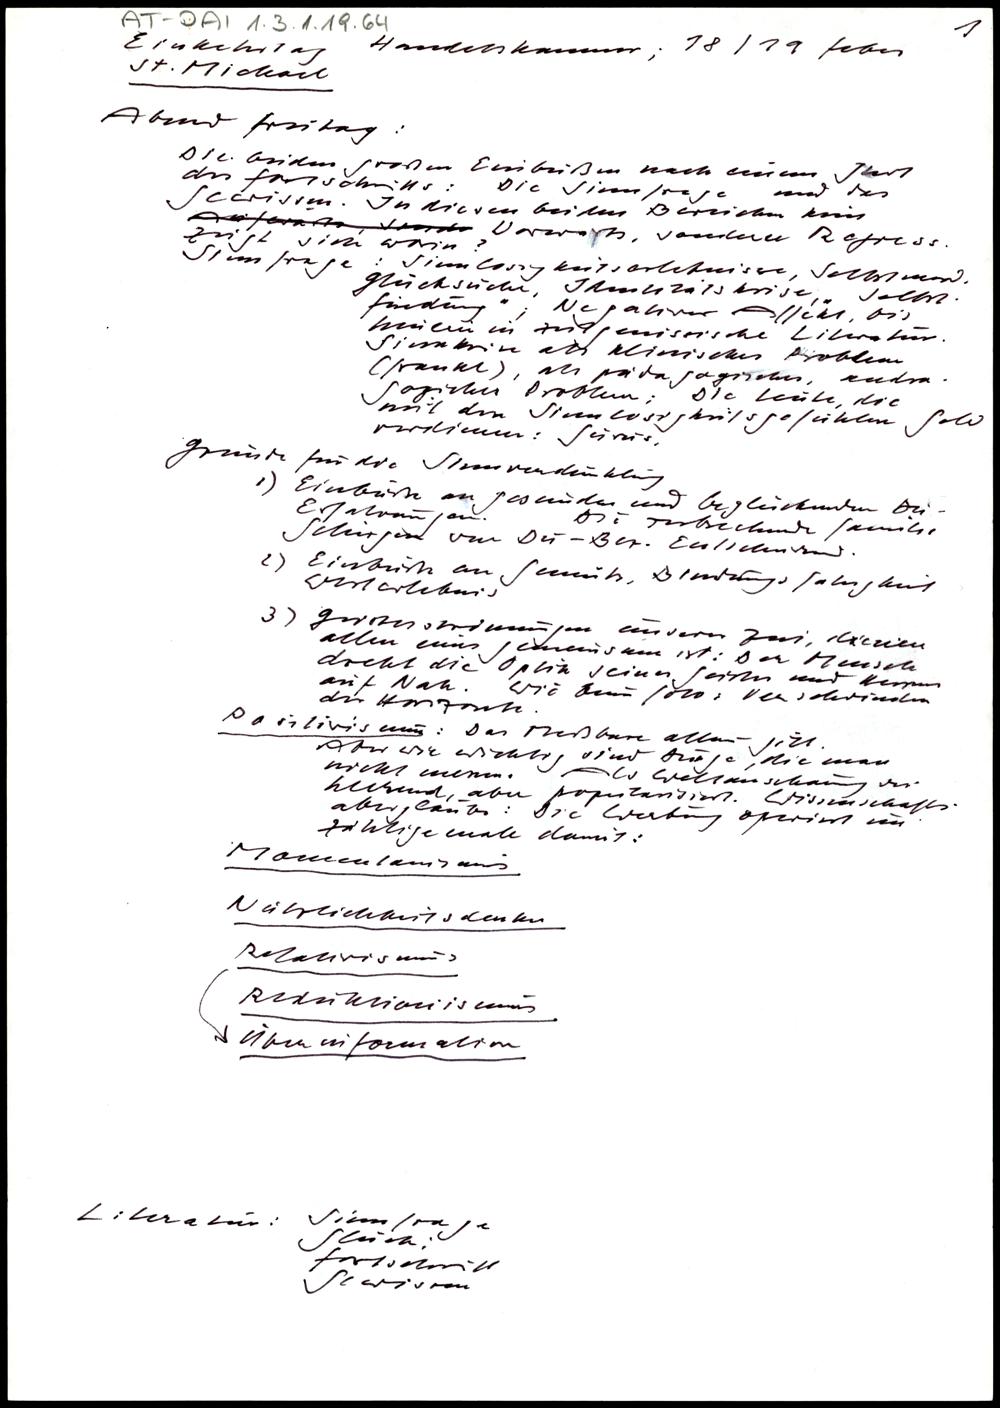 AT-DAI 1.3.1.19.64
1
Einkehrtag Handelskammer, 18/19 feber
St. Michael
Abend freitag:
Die beiden großen Einbußen nach einem Jhrt
des fortschritts: Die Sinnfrage und das
Gewissen. In diesen beiden Bereichen kein
Vorwärts, sondern Regress.
Zeigt sich worin?
Sinnfrage: Sinnlosigkeitserlebnisse, Selbstmord.
glücksuche, Identitätskrise, "Selbst-
findung", Negativer Affekt, bis
hinein in zeitgenössische Literatur.
Sinnkrise als klinisches Problem
(frankl), als pädagogisches, andra-
gogisches Problem; Die Leute, die
mit den Sinnlosigkeitsgefühlen Geld
verdienen: Gurus.
gründe für die Sinnverdunklung
1) Einbuße an gesunden und beglückenden Du-
Erfahrungen. Die zerbrechende familie
Schicksal von Du-Bez. Entscheidend.
2) Einbuße an Gemüt, Bindungsfähigkeit
Werterlebnis
3) geistesströmungen unserer Zeit, denen
allen eines gemeinsam ist: Der Mensch
dreht die Optik seines Geistes und Herzens
auf Nah. Wie beim foto: Verschwinden
der Horizonte.
Positivismus: Das Meßbare allein gilt.
Aber wie wichtig sind Dinge, die man
nicht messen. Als Weltanschauung nicht
herrschend, aber popularisiert. Wissenschafts-
aberglaube: Die Werbung operiert un-
zählige male damit:
Momentanismus
Nützlichkeitsdenken
Relativismus
Reduktionismus
Überinformation
Literatur: Sinnfrage
Glück;
fortschritt
Gewissen